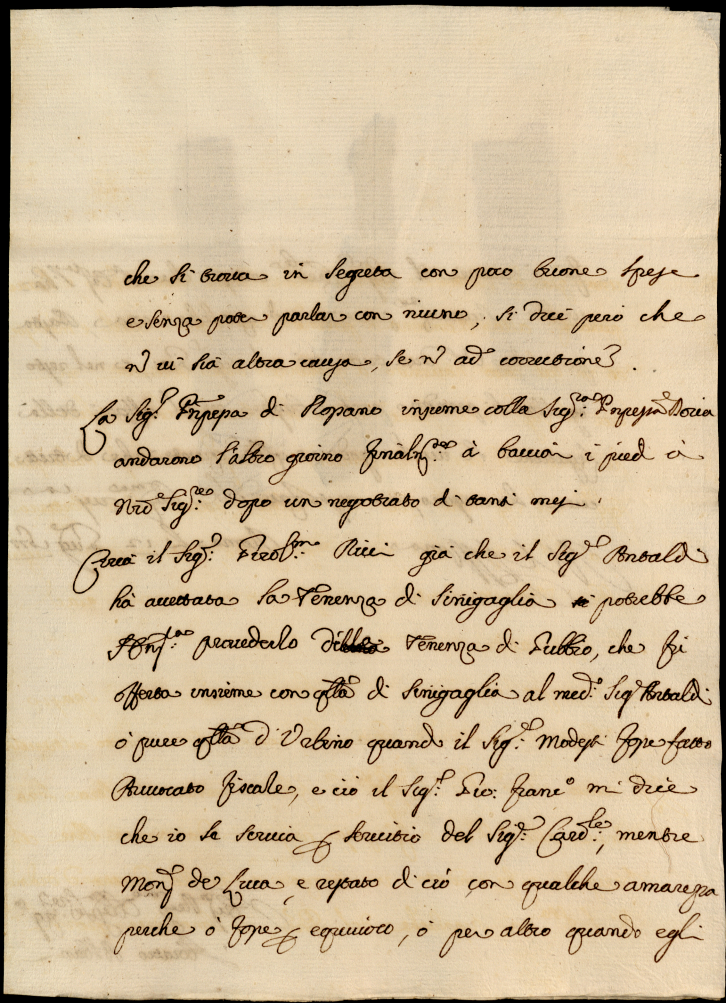 che si trova in segreta con poco buone spese
e senza poter parlar con niuno, si dice però che
ñ vi sia altra causa, se ñ ad correctione
La Sig.ª Pñpessa di Rossano insieme colla Sig.ra Pñpessa Doria
andarono l'altro giorno finalm.te à bacciar i piedi à
Nrõ Sig.re dopo un negotiato di tanti mesi.
Circa il Sig.r Girol.mo Ricci già che il Sig.r Antaldi
hà accettata la Tenenza di Sinigaglia si potrebbe
provederlo della Tenenza di Gubbio, che fù
offerta insieme con qlla di Sinigaglia al med.º Sig.r Antaldi
ò pure qlla d'Urbino quando il Sig.r Modesti fosse fatto
Avvocato fiscale, e ciò il Sig.r Gio: Franc.º mi dice
che io le scriva servitio del Sig.r Card.le, mentre
Mons.r de Luca, è restato di ciò con qualche amarezza
perche ò fosse equivoco, ò per altro quando egli